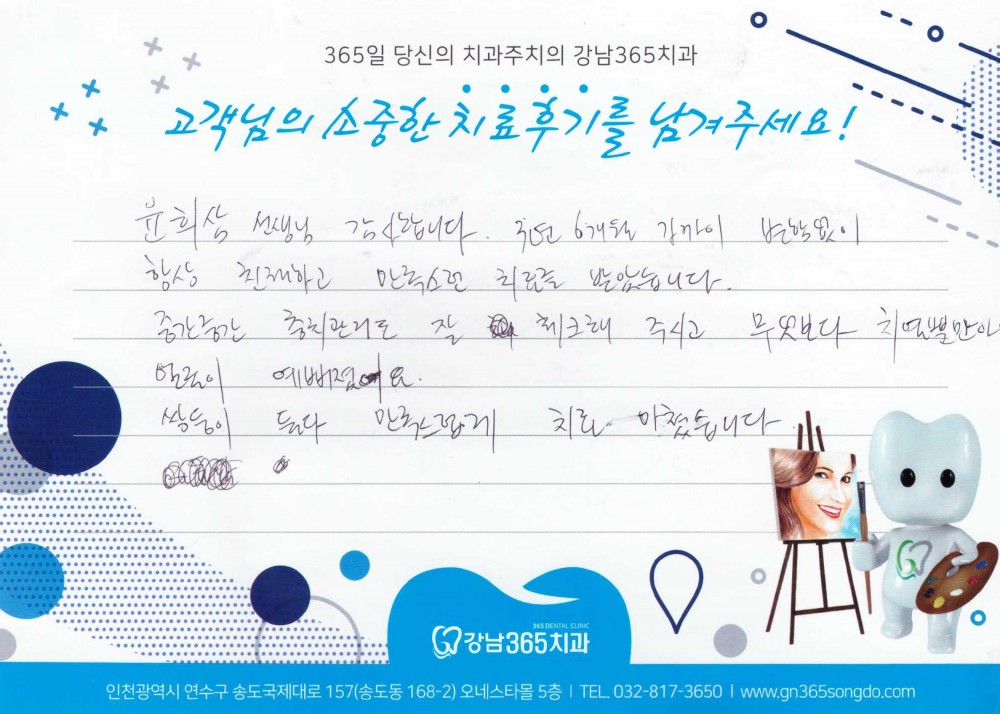 365일 당신의 치과주치의 강남365치과
고객님의 소중한 치료후기를 남겨주세요!
윤희상 선생님 감사합니다. 2년 6개월 가까이 변함없이
항상 친절하고 만족스런 치료를 받았습니다.
중간중간 충치관리도 잘 체크해 주시고 무엇보다 치열뿐만아
얼굴이 예뻐졌어요.
쌍둥이 둘다 만족스럽게 치료 마쳤습니다
365 DENTAL CLINIC
강남365치과
인천광역시 연수구 송도국제대로 157(송도동 168-2) 오네스타몰 5층 | TEL. 032-817-3650 | www.gn365songdo.com